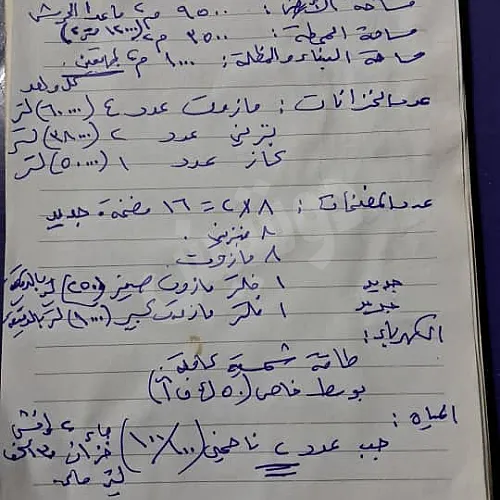 مساحة : ٩٥٠٠ م٢ ماعدا
مساحة المحطة : ٣٥٠٠ م٢
مساحة البناء والمظلة : ١٠٠٠ م٢
كل واحد
عدد الخزانات : مازوت عدد ٤ (٦٠٠٠٠) لتر
بنزين عدد ٢ (٣٨٠٠٠) لتر
كاز عدد ١ (٥٠٠٠٠) لتر
عدد المضخات : ٨×٢ = ١٦ مضخة جديد
٨ بنزين
٨ مازوت
جديد ١ فلتر مازوت صغير (٢٥٠)
جديد ١ فلتر مازوت كبير (١٠٠٠) لتر بالدقيقة
الكهرباء :
طاقة شمسية كاملة
يوسط خاص (٥٠ ك ف أ)
المياه :
جب عدد ٢ ناحمين (١٠٠/١٠٠)
خزان
لتر ماء